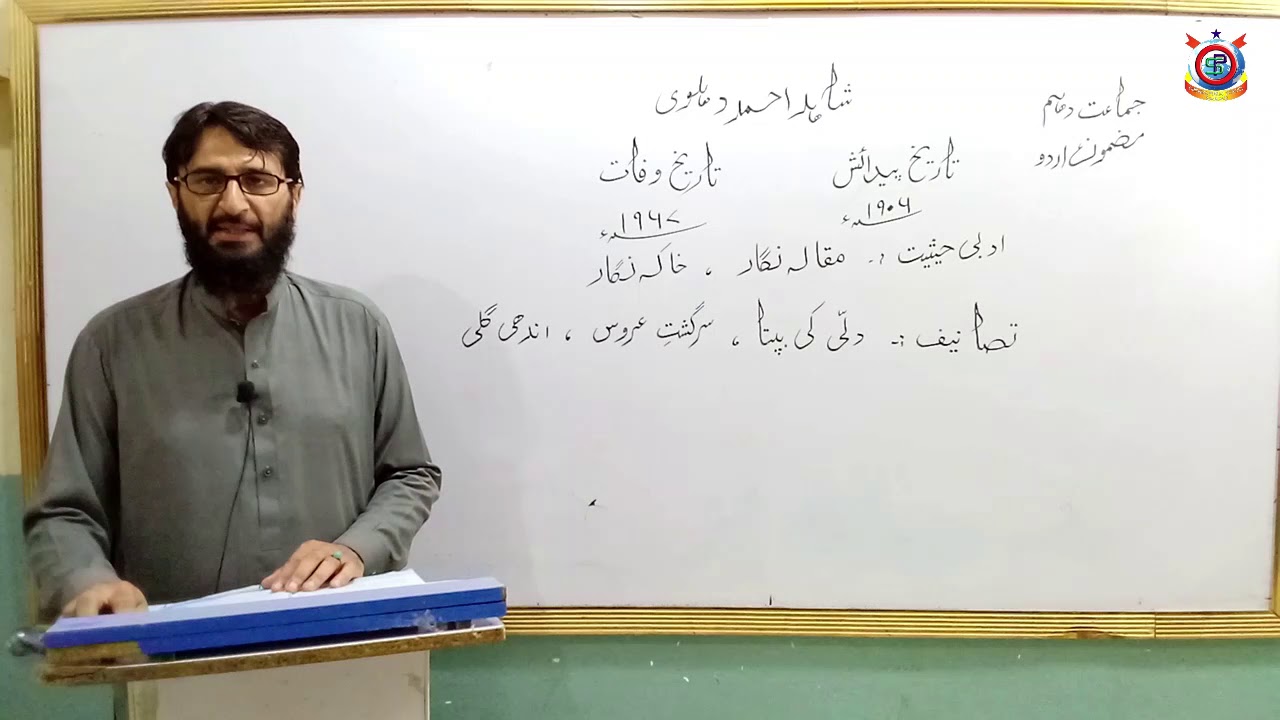 جماعت دہم
مضمون اردو
شاہد احمد دہلوی
تاریخ پیدائش تاریخ وفات
۱۹۰۶ء ۱۹۶۷ء
ادبی حیثیت :۔ مقالہ نگار ، خاکہ نگار
تصانیف :۔ دلّی کی بپتا ، سرگشتِ عروس ، اندھی گلی